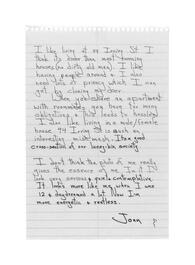 I like living at 94 Irving St. I
think its nicer than most rooming
houses (no dirty old men). I like
having people around & I also
need lots of privacy which I can
get by closing my door.
When you share an apartment
with roommates you have too many
obligations & this leads to hassles.
I also like living in a male/female
house. 94 Irving St is such an
interesting mishmash. It's a good
cross-section of our Cambridge society.
I don't think the photo of me really
gives the essence of me. In it I
look very serious & quiet & contemplative.
It looks more like me when I was
12 & daydreamed a lot. Now I'm
more energetic & restless.
Joan